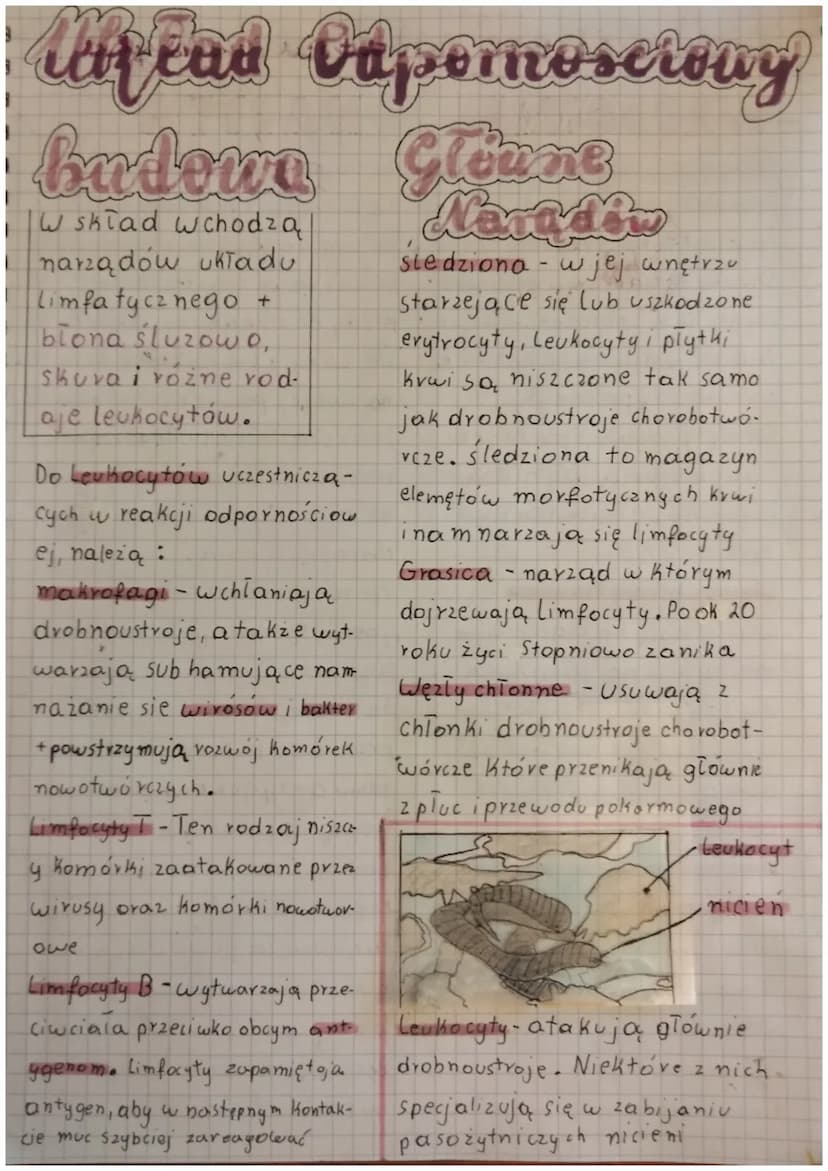 Układ Odpornościowy
budowa
W skład wchodzą
narządów układu
limfatycznego +
błona śluzowo,
skura i różne rod-
aje leukocytów.
Do Leukocytów uczestniczą-
cych w reakcji odpornościow
ej, należą :
makrofagi - wchłaniają
drobnoustroje, a także wyt-
warzają sub hamujące nam-
nażanie sie wirósów i bakter
+ powstrzymują rozwój komórek
nowotwórczych.
Limfocyty T - Ten rodzaj niszcz-
y komórki zaatakowane przez
wirusy oraz komórki nowotwor-
owe
Limfocyty B - wytwarzają prze-
ciwciała przeciwko obcym ant-
ygenom. Limfocyty zapamiętają
antygen, aby w następnym kontak-
cie muc szybciej zareagować
Główne
Narządów
śledziona - w jej wnętrzu
starzejące się lub uszkodzone
erytrocyty, Leukocyty i płytki
krwi są niszczone tak samo
jak drobnoustroje chorobotwó-
rcze. śledziona to magazyn
elemętów morfotycznych krwi
i namnarzają się limfocyty
Grasica - narząd w którym
dojrzewają Limfocyty. Po ok 20
roku życi Stopniowo zanika
Węzły chłonne - usuwają z
chłonki drobnoustroje chorobot-
wórcze które przenikają głównie
z płuc i przewodu pokarmowego
Leukocyt
nicień
Leukocyty - atakują głównie
drobnoustroje. Niektóre z nich
specjalizują się w zabijaniu
pasożytniczych nicieni